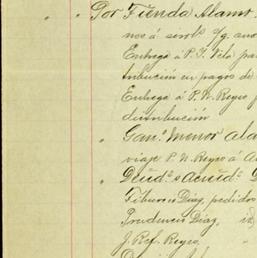 " " Por Tienda Alamo
nos á senbs Ig. ano
Entrega á P. I. Vela pa
tribución en pagos de
Entrega á P. N. Reyes p
distribución
" Gano. Menor ala
viaje P. N. Reyes á A
" Deuds. s Acreds. D
Tiburcio Diaz, pedidos
Prudencio Diaz, id
J. Ref. Reyes, "